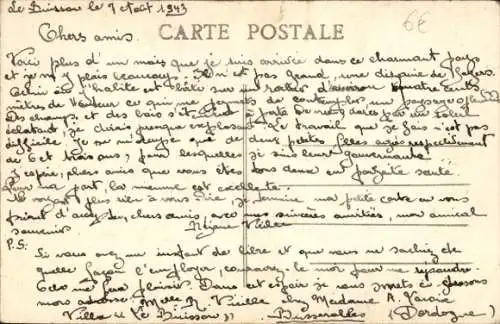 Le Buisson le 9 Août 1943
6€
CARTE POSTALE
Chers amis.
Voici plus d'un mois que je suis arrivée dans ce charmant pays
et je m'y plais beaucoup. Il n'est pas grand, une dizaine de foyers.
que j'habite est bâtie sur un rocher d'environ quatre cents
mètres de hauteur ce qui me permet de contempler un paysage
Des champs et des bois s'étendent à perte de vue, par un soleil
éclatant, je dirais presque Le travail que je fais n'est pas
difficile. Je ne m'occupe que de deux petites filles âgées respectivement
de 6 et trois ans, pour lesquelles je suis leur gouvernante.
J'espère, chers amis que vous êtes tous deux en parfaite santé.
Pour ma part, la mienne est excellente.
Ne voyant plus rien à vous dire, je termine ma petite carte en vous
priant d'agréer, chers amis, avec mes sincères amitiés, mon amical
souvenir.
P.S:
Si vous avez un instant de libre et que vous ne sachiez de
quelle façon l'employer, consacrez-le moi pour me répondre.
Cela me fera plaisir. Dans cet espoir je vous mets ci-dessous
mon adresse. Melle R. Vieille chez Madame A.
Villa "Le Buisson" (Dordogne)